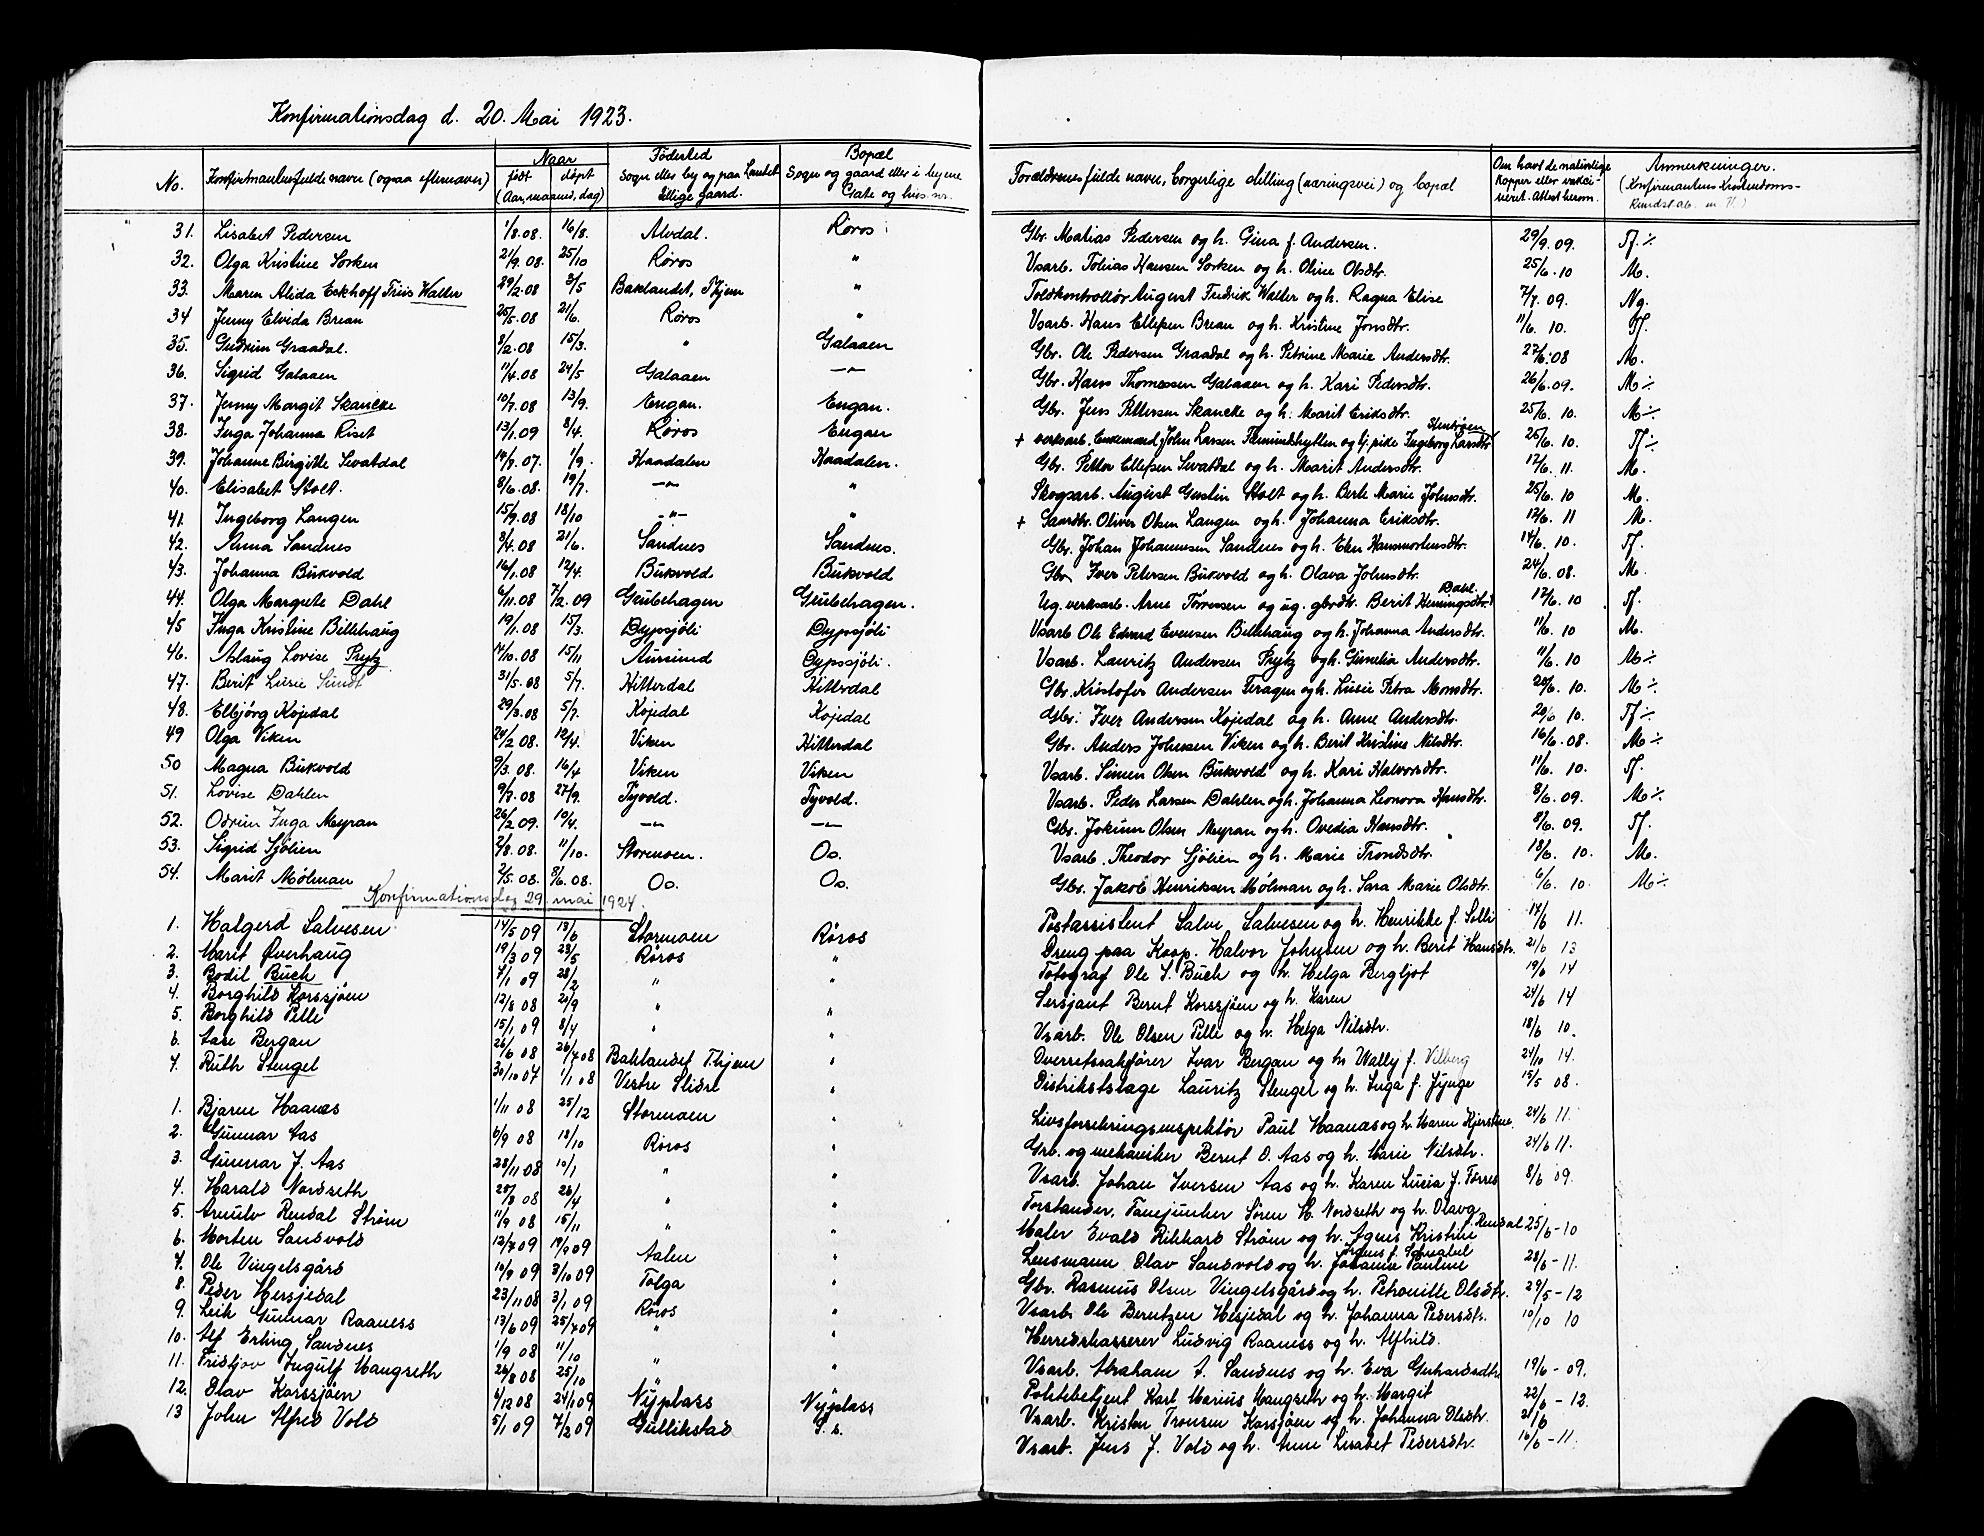 Konfirmationsdag d. 20. Mai 1923.
No. Konfirmantens fulde navn (ogsaa efternavn) Naar født døpt (Aar, maaned, dag) Fødested Sogn eller by og paa Landet tillige gaard. Bopæl Sogn og gaard eller i byene Gate og hus nr. Forældrenes fulde navn, borgerlige stilling (næringsvei) og bopæl Om havt de naturlige kopper eller vakcineret. Attest herom. Anmerkninger. (Konfirmantens Kristendoms-Kundskab. m. V.)
31. Lisabet Pedersen 1/8.08. 16/8. Alvdal. Røros Gbr. Matias Pedersen og h. Gina f. Andersen. 29/9.09. Tf. ÷
32. Olga Kristine Sorken 21/9.08. 25/10 Røros " Vsarb. Tobias Hansen Sorken og h. Oline Olsdtr. 25/6.10 M.
33. Maren Alida Eckhoff Friis Walter 29/2.08 3/5 Baklandet, Thjem " Toldkontrollør August Fredrik Walter og h. Ragna Elise 7/7.09. Ng.
34 Jenny Elvida Brean 25/5.08 21/6. Røros " Vsarb. Hans Ellefsen Brean og h. Kristine Jonsdtr. 11/6.10. Tf.
35. Gudrun Graadal. 8/2.08 15/3. " Galaaen Gbr. Ole Pedersen Graadal og h. Petrine Marie Andersdtr. 27/6.08 M.
36. Sigrid Galaaen 11/4.08 24/5 Galaaen —"— Gbr. Hans Thomassen Galaaen og h. Kari Pedersdtr. 26/6.09. M ÷
37. Jenny Margit Skancke 10/7.08 13/9. Engan. Engan. Gbr. Jens Pettersen Skancke og h. Marit Eriksdtr. 25/6.10. M ÷
38. Inga Johanna Riset 13/1.09 8/4. Røros Engan + verksarb. Enkemand John Larsen Femundshytten og ug. pike Ingeborg Larsdtr. 25/6.10. Tf. ÷
39. Johanne Birgitte Sevatdal 14/7.07. 1/9. Haadalen Haadalen. Gbr. Petter Ellefsen Sevatdal og h. Marit Andersdtr. 12/6.11. M.
40. Elisabet Stolt. 8/6.08. 19/7. —"— " Skogsarb. August Gustin Stolt og h. Berte Marie Johnsdtr. 25/6.10 M.
41. Ingeborg Langen 15/9.08 18/10 —"— " + Gaardbr. Oliver Olsen Langen og h. Johanna Eriksdtr. 12/6.11 M.
42. Anna Sandnes 3/4.08 21/6. Sandnes Sandnes. Gbr. Johan Johannesen Sandnes og h. Elen Hansmortensdtr. 14/6.10. Tf.
43. Johanna Bukvold 16/1.08 12/4. Bukvold Bukvold Gbr. Iver Petersen Bukvold og h. Olava Johnsdtr. 24/6.08. M.
44. Olga Margrete Dahl 6/11.08 7/2.09 Grubehagen Grubehagen. Ug. verksarb. Arne Torresen og ug. gbrdtr. Berit Henningsdtr. Dahl. 12/6.10 Tf.
45 Inga Kristine Billehaug 19/1.08 15/3. Dypsjøli Dypsjøli Vsarb. Ole Edvard Evensen Billehaug og h. Johanna Andersdtr. 11/6.10 M.
46. Aslaug Lovise Prytz 14/10.08 15/11 Aursund Dypssjøli. Vsarb. Lauritz Andersen Prytz og h. Gunelia Andersdtr. 11/6.10 M ÷
47. Berit Lusie Sundt 31/5.08 5/7. Hitterdal Hitterdal Gbr. Kristofer Andersen Feragen og h. Lusie Petra Monsdtr. 20/6.10. M ÷
48. Elbjørg Kojedal 29/3.08 5/7. Kojedal Kojedal Gbr. Iver Andersen Kojedal og h. Anne Andersdtr. 20/6 10. Tf ÷
49 Olga Viken 24/2 08. 12/4. Viken Hitterdal Gbr. Anders Johnsen Viken og h. Berit Kristine Nilsdtr. 16/6.08. M ÷
50 Magna Bukvold 9/3.08. 16/4 Viken Viken Vsarb. Simen Olsen Bukvold og h. Kari Halvorsdtr. 11/6.10. Tf.
51. Lovise Dahlen 9/7.08 27/9. Tyvold. Tyvold. Vsarb. Peder Larsen Dahlen og h. Johanna Leonora Hansdtr. 8/6.09. M ÷
52. Odrun Inga Meyran 26/2 09. 10/4. —"— —"— Gbr. Jokum Olsen Meyran og h. Ovedia Hansdtr. 8/6.09. Tf.
53. Sigrid Sjölien 2/8.08. 11/10. Stormoen. Os. Vsarb. Theodor Sjölien og h. Marie Trondsdtr. 18/6.10. M.
54. Marit Mølman 2/5.08. 8/6.08. Os. Os. Gbr. Jakob Henriksen Mølman og h. Sara Marie Olsdtr. 6/6.10. M ÷
Konfirmationsdag 29. mai 1924.
1. Halgerd Salvesen 14/5 09 13/6 Stormoen Røros Postassistent Salve Salvesen og h. Henrikke f. Solli 14/6 11.
2. Marit Øverhaug 19/3 09 23/5 Røros " Dreng paa Koop. Halvor Johnsen og h. Berit Hansdtr. 21/6 13
3. Bodil Buch 4/1 09 28/2 " " Fotograf Ole S. Buch og h. Helga Bergljot 19/6 14
4. Borghild Korssjøen 12/8 08 20/9 " " Sersjant Bernt Korssjøen og h. Karen 24/6 14
5. Borghild Pelle 15/1 09 8/4 " " Vsarb. Ole Olsen Pelle og h. Helga Nilsdtr. 18/6 10.
6. Aase Bergan 26/6 08 26/7 08 Baklandet Thjem " Overretssakfører Ivar Bergan og h. Wally f. Vilberg 24/10 14.
7. Ruth Stengel 30/10 07 1/1 08 Vestre Slidre " Distriktslæge Lauritz Stengel og h. Inga f. Jynge 15/5 08.
1. Bjarne Haanæs 1/11 08 25/12 Stormoen " Livsforsikringsinspektør Paul Haanæs og h. Maren Kjerstine 24/6 11.
2. Gunnar Aas 6/9 08 18/10 Røros " Grb. og mekaniker Bernt O. Aas og h. Marie Nilsdtr. 24/6 11.
3. Gunnar J. Aas 28/11 08 10/1 " " Vsarb. Johan Iversen Aas og h. Karen Lucia f. Torres 8/6 09.
4. Harald Nordseth 28/8 08 26/4 " " Forstander, Fanejunker Søren H. Nordseth og h. Olava
5. Arnulv Rendal Strøm 11/9 08 15/11 " " Maler Evald Rikhard Strøm og h. Agnes Kristine f. Rendal 25/6-10
6. Morten Sandvold 12/7 09 19/9 09 Aalen " Lensmann Olav Sandvold og h. Johanne Pauline 28/6-11.
7. Ole Vingelsgård 10/9 09 3/10 09 Tolga " Gbr. Rasmus Olsen Vingelsgård og h. Petronille Olsdtr. 29/5-12
8. Peder Hersjedal 23/11 08 3/1 09 Røros " Vsarb. Ole Berntzen Hesjedal og h. Johanna Pedersdtr. 10/10 10
9. Leik Gunnar Raaness 13/6 09 25/7 09 " " Herredskasserer Ludvig Raaness og h. Alfhild.
10. Alf Erling Sandnes 1/9 08 11/10 " " Vsarb. Abraham A. Sandnes og h. Eva Gerhardsdtr. 19/6-09.
11. Fridtjov Ingulf Mangseth 26/8 08 25/10 " " Politibetjent Karl Marius Mangseth og h. Margit 22/6-12.
12. Olav Korssjøen 4/12 08 24/1 09 Nyplass Nyplass Vsarb. Kristen Tronsen Korsjøen og h. Johanna Olsdtr. 21/6
13 John Alfred Vold 5/1 09 7/2 09 Gullikstad S.s. Vsarb. Jens J. Vold og h. Anne Lisabet Pedersdtr. 16/6-11.